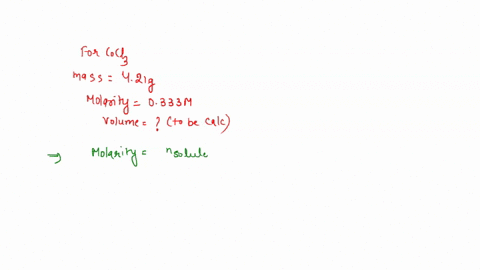 For CoCl3
mass = 4.21g
Molarity = 0.333M
Volume = ? (to be calc)
⇒ Molarity = nsolute